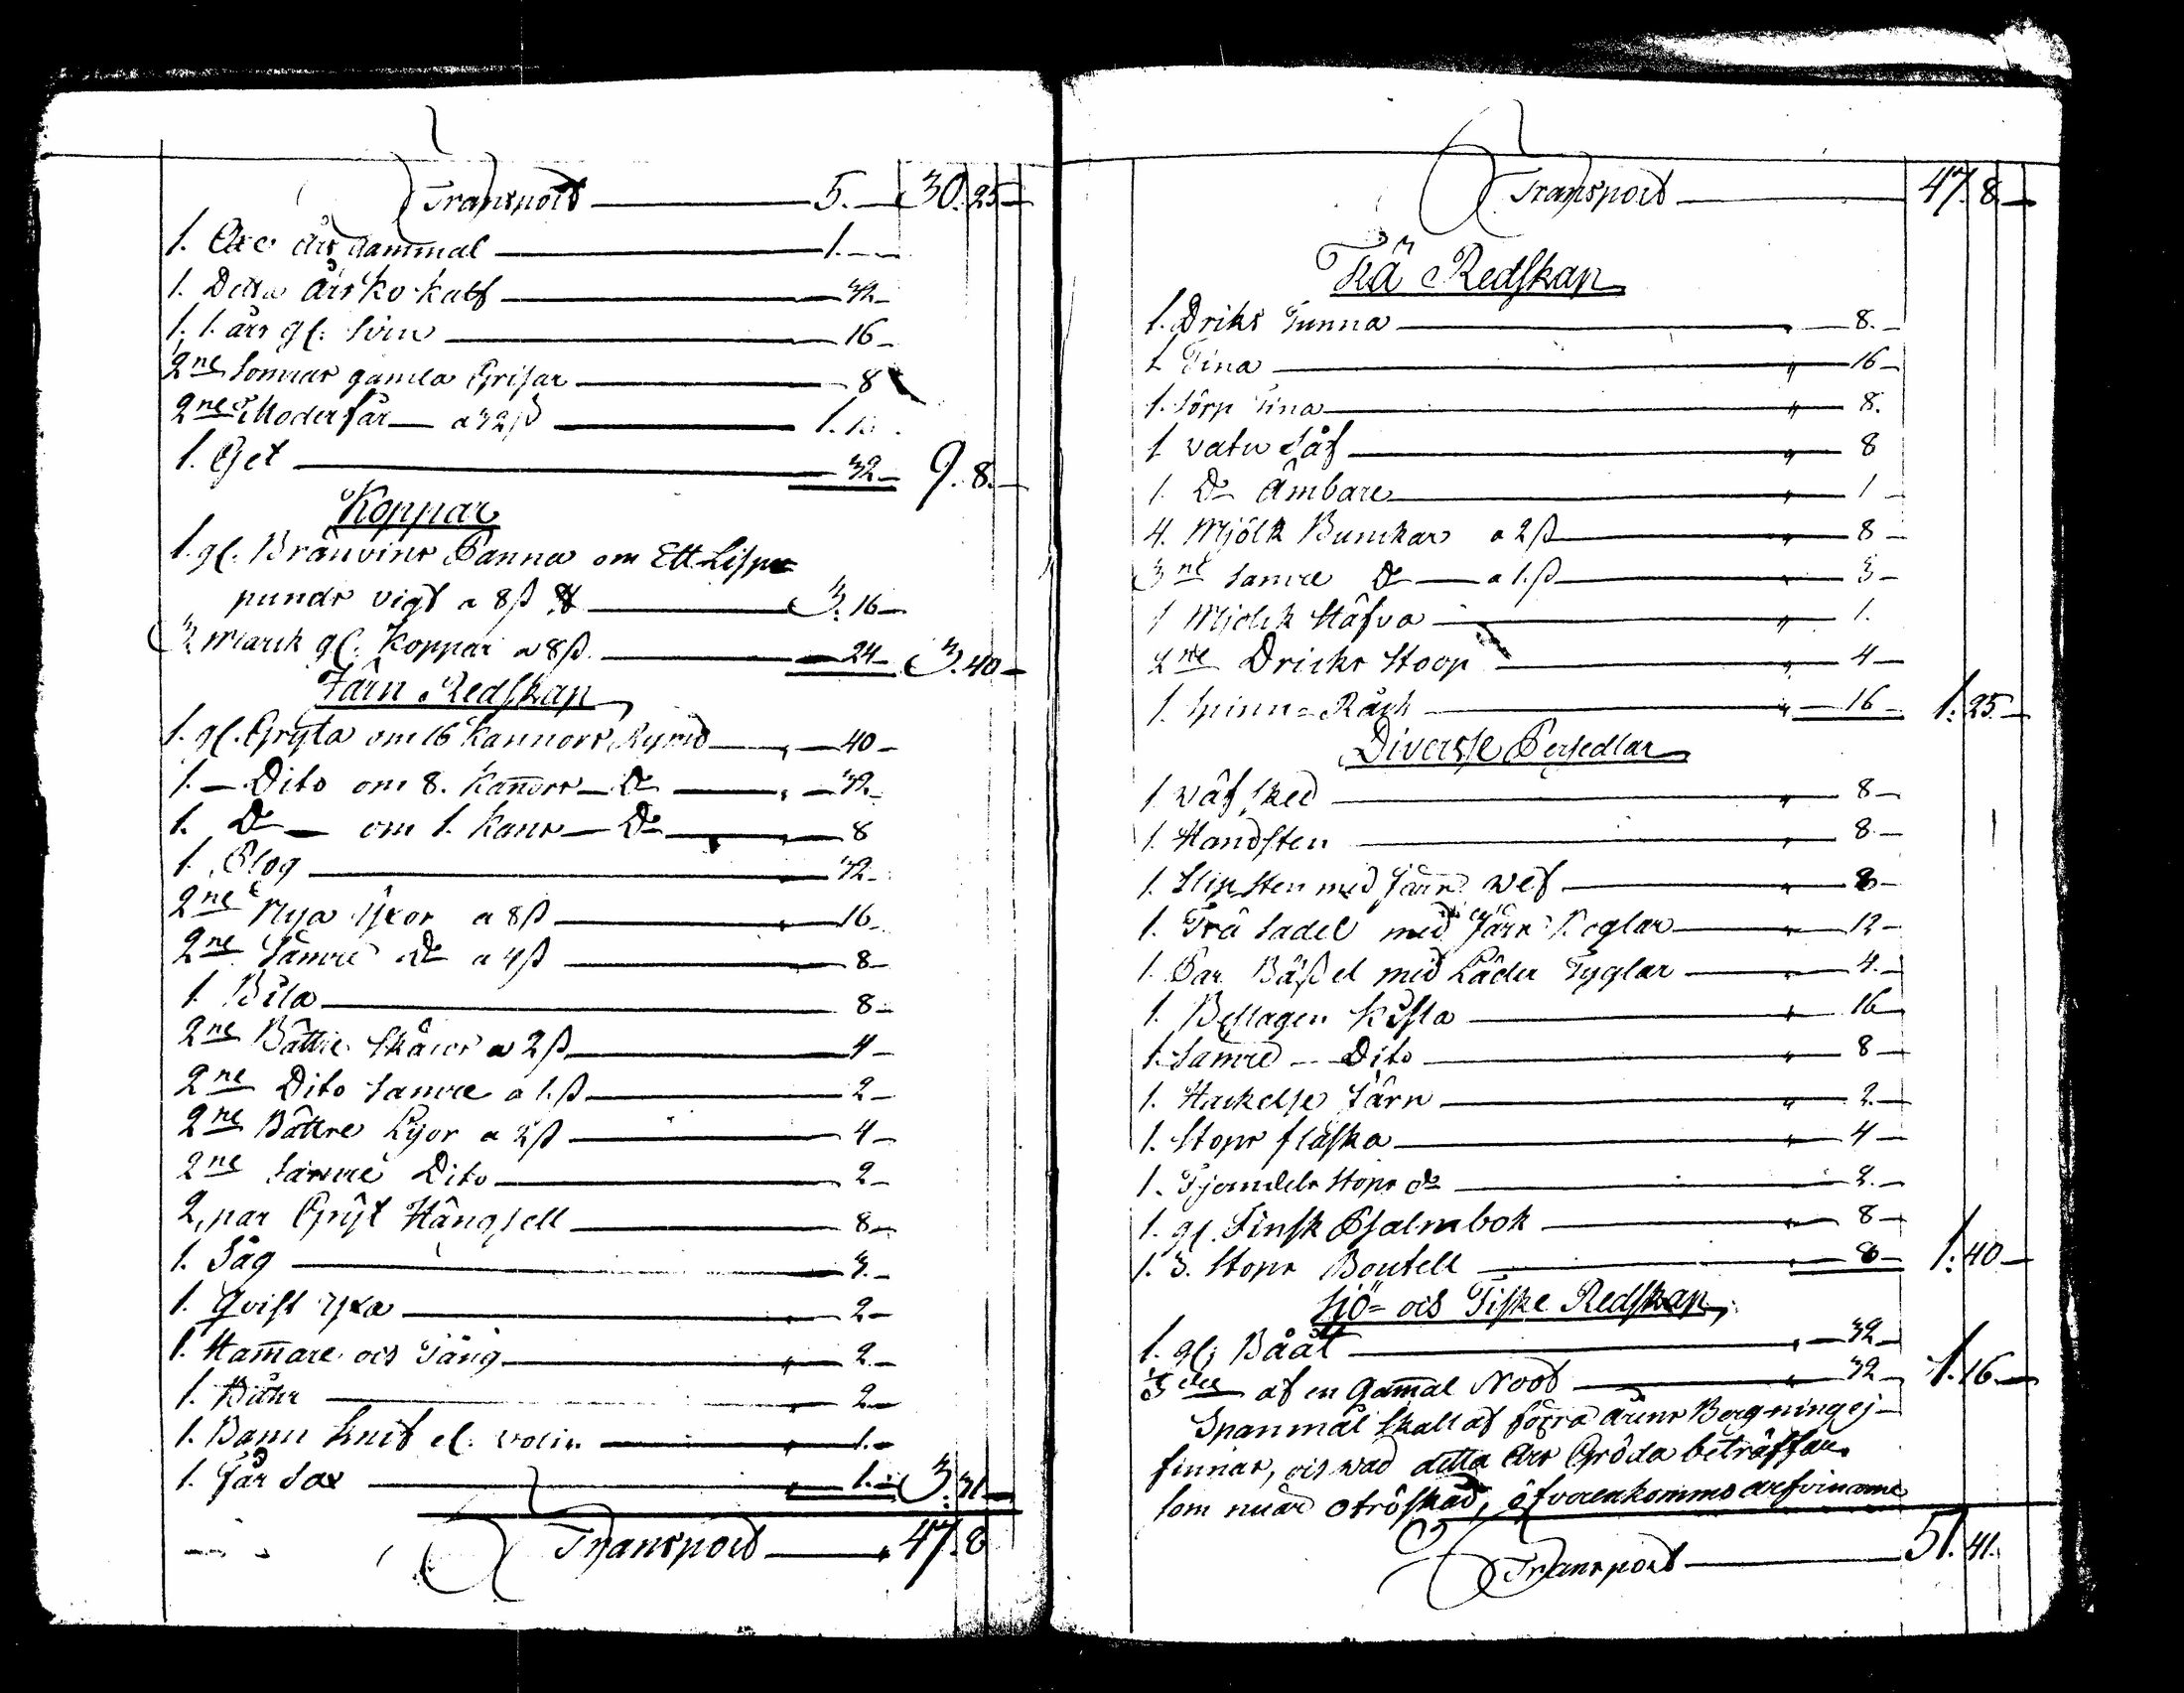 Transport 5. 30. 25
1. Oxe års gammal 1.
1. Detta års Ko Kalf 32
1. 1. års gl: Svin 16
2ne Somrar gamla Grisar 8
2ne Moder får a 32 ß 1. 16
1. Get 32 9. 8.
Koppar
1. gl. Bränvins Panna om Ett Lispu
punds vigt a 8 ß 3. 16
3. Marck gl. Koppar a 8 ß. 24 3. 40
Järn Redskap
1. gl. Gryta om 16 Kannors Rymd 40
1. Dito om 8. Kannors Do 32
1. Do om 1. Kans Do 8
1. Plog 32
2ne Nya Yxor a 8 ß 16
2ne Sämre Do a 4 ß 8
1. Bila 8
2ne Bättre Skäror a 2 ß 4
2ne Dito Sämre a 1. ß 2
2ne Bättre Lijor a 2 ß 4
2ne Sämre Dito 2
2, par Gryt Hängsell 8
1. Såg 3.
1. Qvist Yxa 2
1. Hammare och Tång 2
1. 2
1. Band Knif el. 1.
1. Får Sax 1. 3. 31
Transport 47. 8
Transport 47. 8.
Trä Redskap
1. Driks Tunna 8.
1. Tina 16
1. Sörp Tina 8.
1. vatu Såf 8
1. Do Ämbare 1
4. Mjölk Bunckar a 2 ß 8
3ne Sämre Do a 1. ß 3
1 Mjölck Stäfva 1.
2ne Dricks Stoop 4
1. Spinn=Råck 16 1. 25
Diversse Persedlar
1. Väf sked 8
1. Handsten 8
1. Slipsten med Järn Wef 8
1. Trä Sadel med Järn Boglar 12
1. Par Bäßel med Läder Tyglar 4.
1. Beslagen Kista 16
1. Sämre Dito 8
1. Hackelse Järn 2.
1. Stops flaska 4
1. Fjerndels Stops do 2.
1. gl. Finsk Psalmbok 8
1. 3. Stops Boutell 8 1. 40
Siö= och Fiske Redskap
1. gl; Bååt 32
1/3 del af en Gammal Noot 32 1. 16
Spanmål Skall af förra årens Bergning ej
finnas, och wad detta Års Gröda beträffar
som nu är otröskad, öfverenkommo arfvingarne
Transport 51. 41.